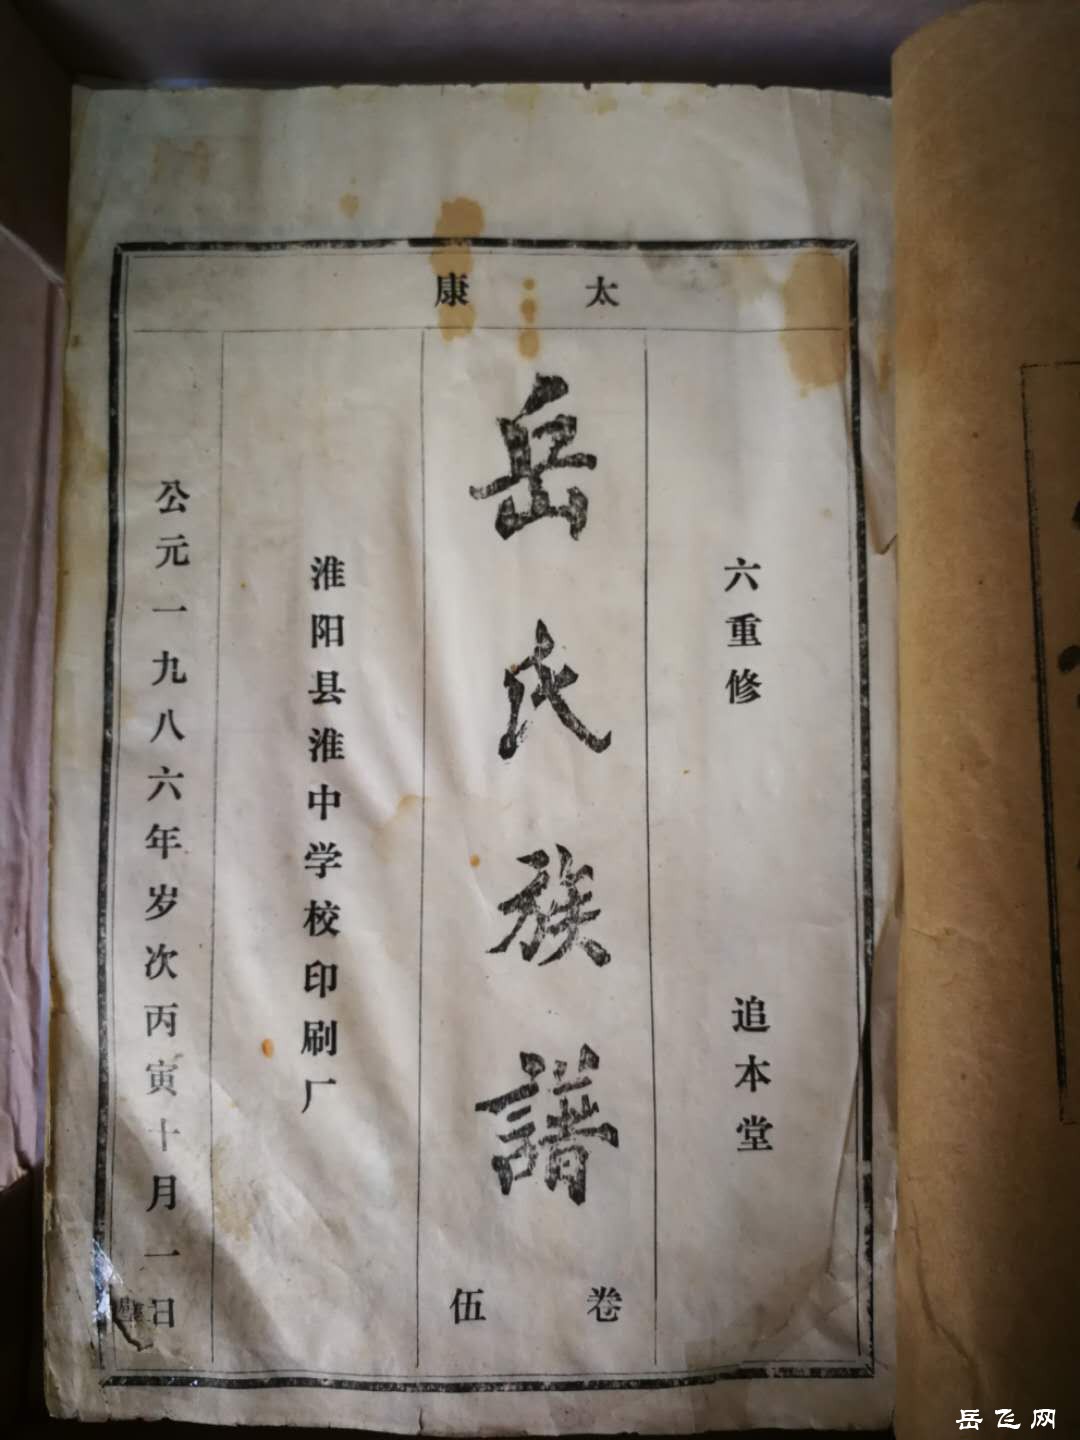 太康
六重修 追本堂
岳氏族譜
卷伍
淮阳县淮中学校印刷厂
公元一九八六年岁次丙寅十月一日
岳飞网